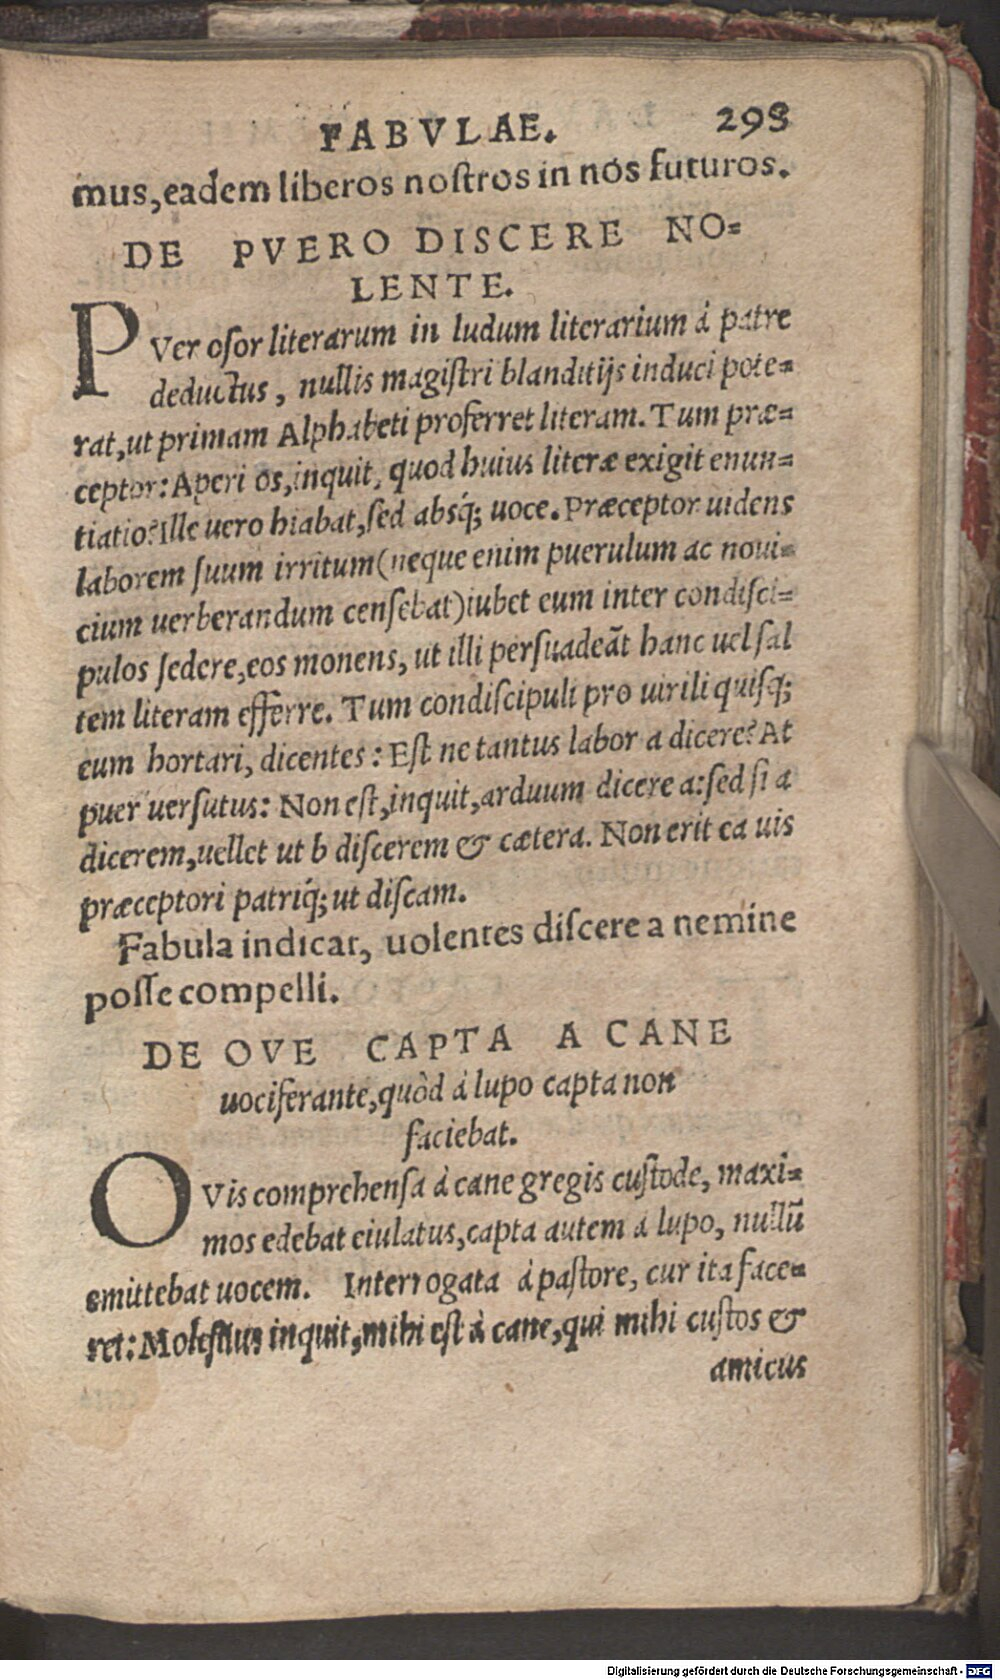 FABVLAE. 293
mus, eadem liberos nostros in nos futuros.
DE PVERO DISCERE NO=
LENTE.
PVer osor literarum in ludum literarium à patre
deductus, nullis magistri blanditijs induci pote=
rat, ut primam Alphabeti proferret literam. Tum præ=
ceptor: Aperi os, inquit, quod huius literæ exigit enun=
tiatio? Ille uero hiabat, sed absq́; uoce. Præceptor uidens
laborem suum irritum (neque enim puerulum ac noui=
cium uerberandum censebat) iubet eum inter condisci=
pulos sedere, eos monens, ut illi persuadeāt hanc uel sal
tem literam efferre. Tum condiscipuli pro uirili quisq;
eum hortari, dicentes: Est ne tantus labor a dicere? At
puer uersutus: Non est, inquit, arduum dicere a: sed si a
dicerem, uellet ut b discerem & cætera. Non erit ea uis
præceptori patriq́; ut discam.
Fabula indicat, uolentes discere a nemine
posse compelli.
DE OVE CAPTA A CANE
uociferante, quòd à lupo capta non
faciebat.
OVis comprehensa à cane gregis custode, maxi=
mos edebat eiulatus, capta autem a lupo, nullū
emittebat uocem. Interrogata à pastore, cur ita face=
ret: Molestius inquit, mihi est à cane, qui mihi custos &
amicus
Digitalisierung gefördert durch die Deutsche Forschungsgemeinschaft - DFG